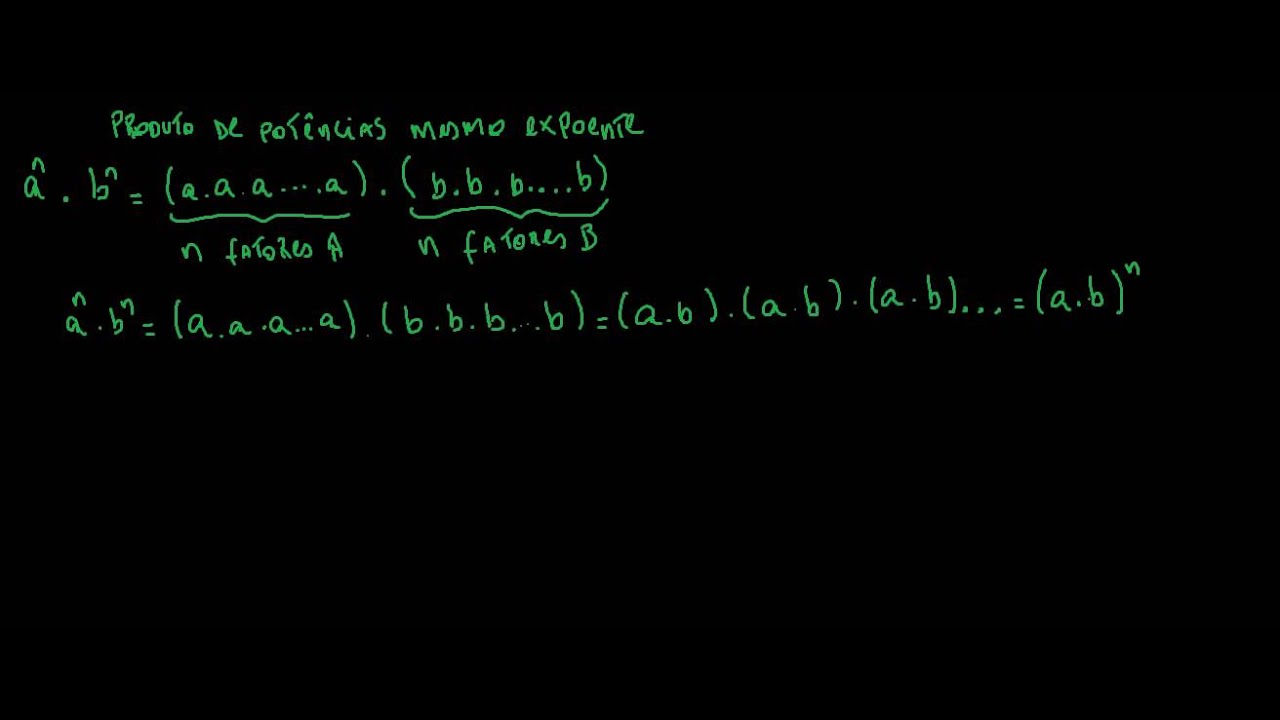 PRODUTO DE POTÊNCIAS MESMO EXPOENTE
aⁿ . bⁿ = (a.a.a....a).(b.b.b....b)
n FATORES A n FATORES B
aⁿ.bⁿ = (a.a.a...a).(b.b.b...b) = (a.b).(a.b).(a.b)... = (a.b)ⁿ